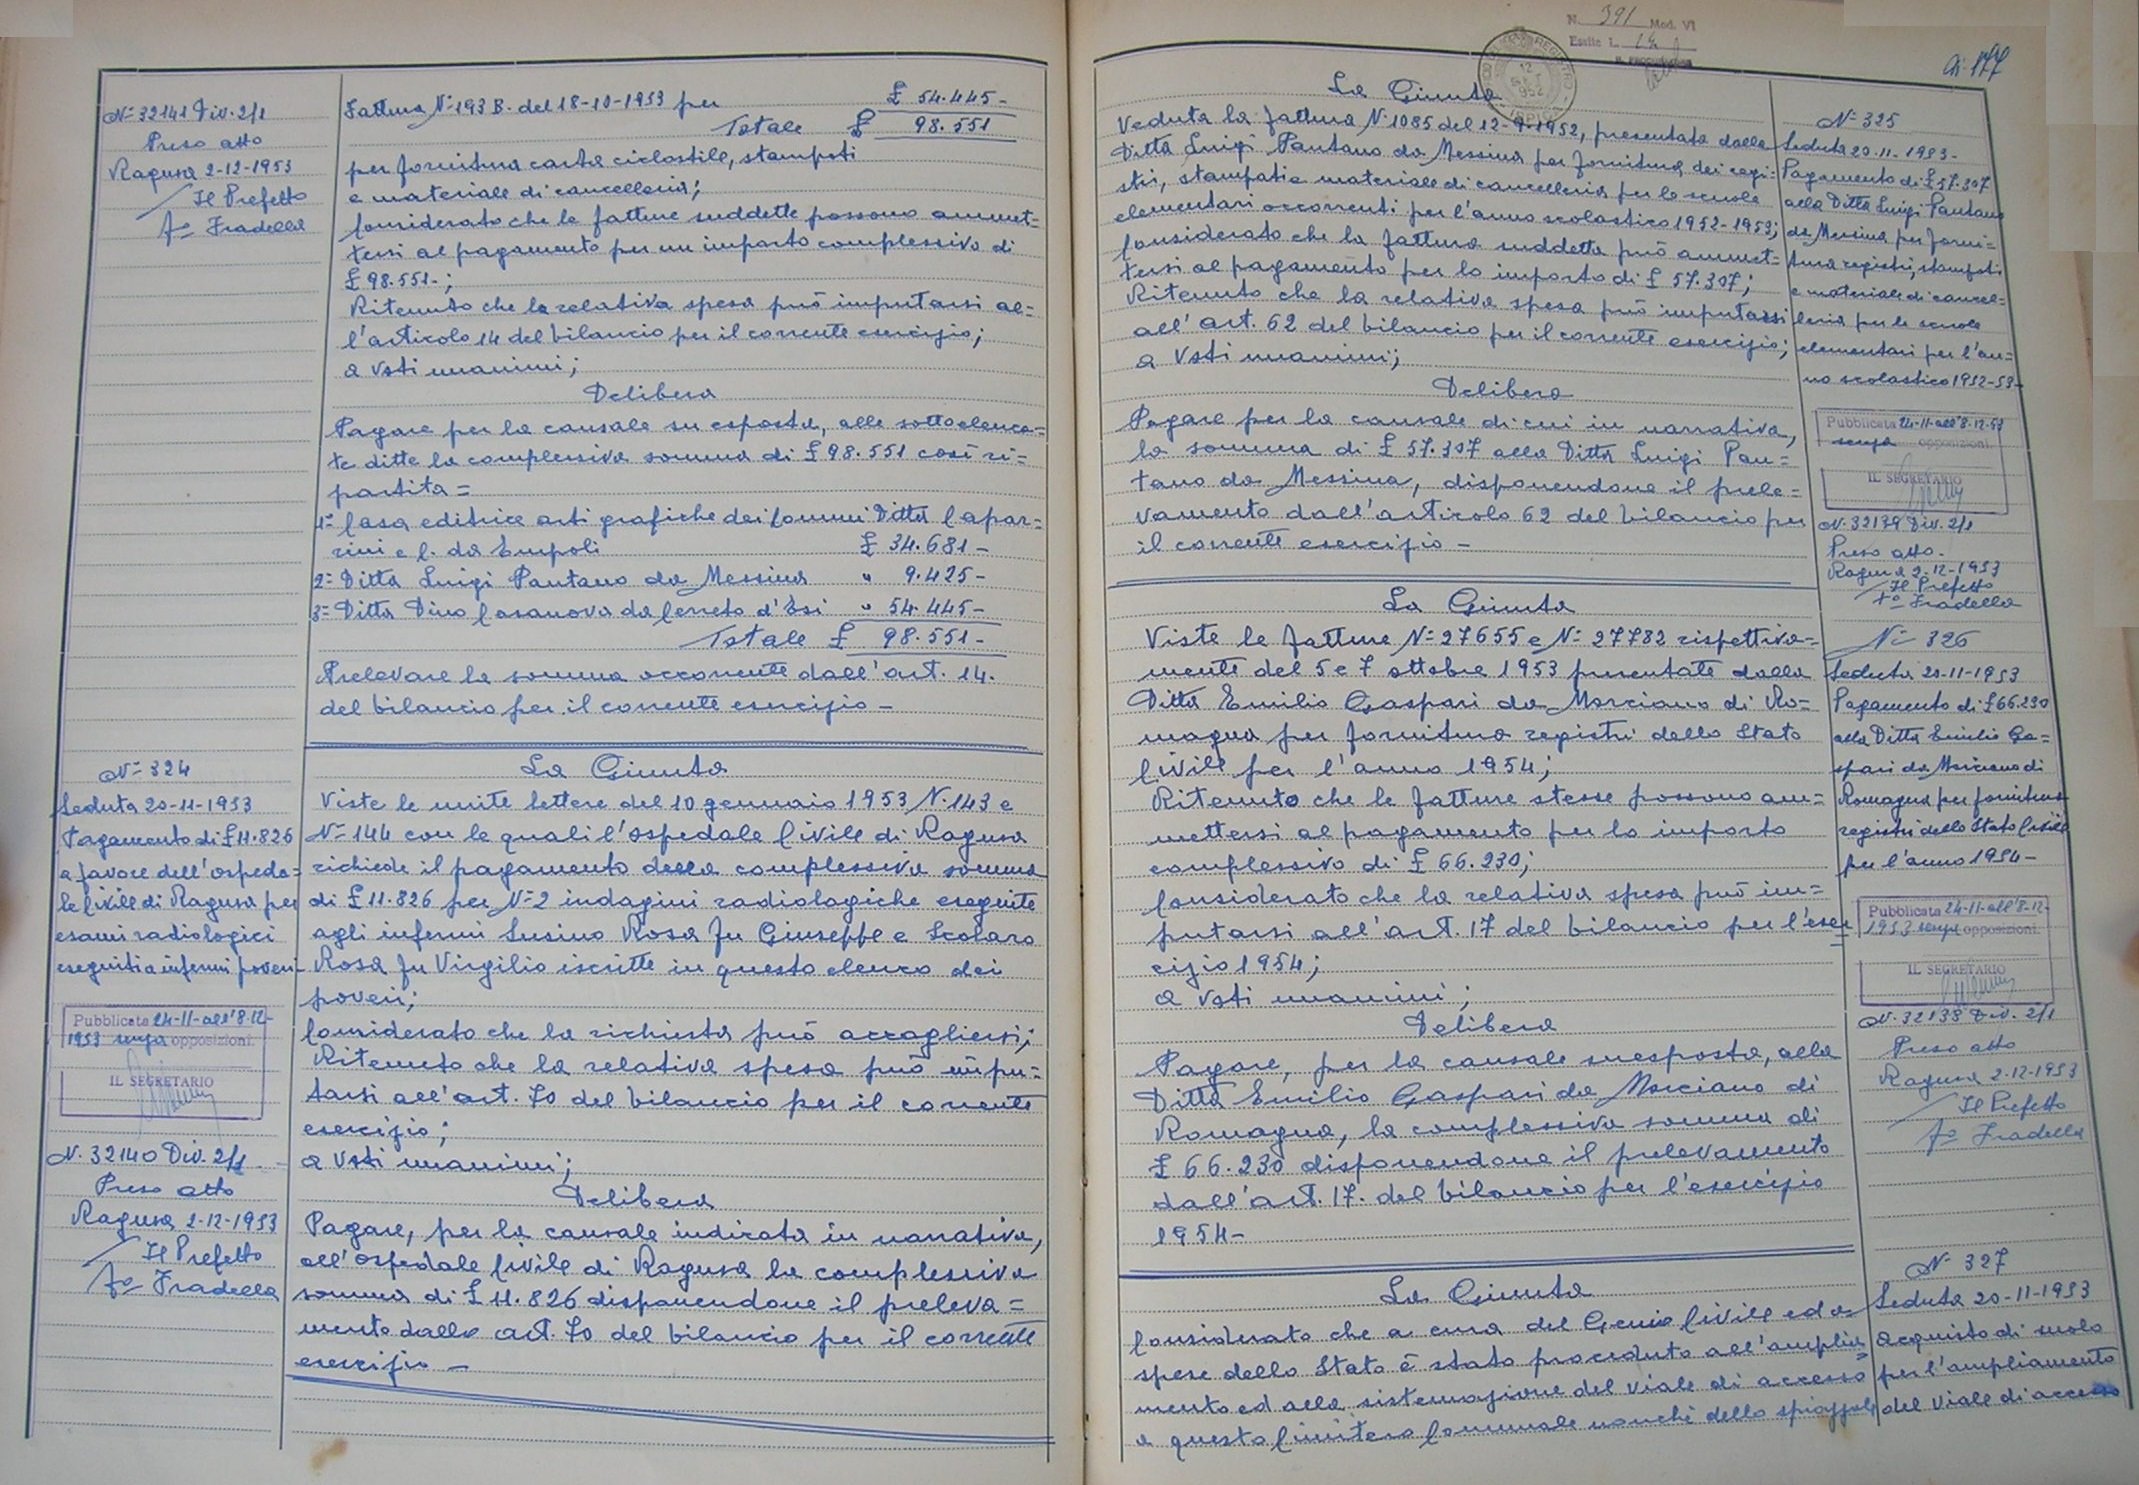 N= 32141 Div. 2/1
Preso atto
Ragusa 2-12-1953
Il Prefetto
fo Fradella
Fattura N=193 B. del 18-10-1953 per £ 54.445-
Totale £ 98.551
per fornitura carta ciclostile, stampati
e materiale di cancelleria;
Considerato che le fatture suddette possono ammet=
tersi al pagamento per un importo complessivo di
£ 98.551-;
Ritenuto che la relativa spesa può imputarsi al=
l'articolo 14 del bilancio per il corrente esercizio;
a voti unanimi;
Delibera
Pagare per la causale su esposta, alle sottoelenca=
te ditte la complessiva somma di £ 98.551 così ri=
partita=
1= Casa editrice arti grafiche dei Comuni Ditta Capar=
rini e C. da Empoli £ 34.681-
2= Ditta Luigi Pantano da Messina " 9.425-
3= Ditta Dino Casanova da Cerreto d'Esi " 54.445-
Totale £ 98.551-
Prelevare la somma occorrente dall'art. 14.
del bilancio per il corrente esercizio -
N= 324
Seduta 20-11-1953
Pagamento di £ 11.826
a favore dell'ospeda=
le Civile di Ragusa per
esami radiologici
eseguiti a infermi poveri-
Pubblicata 24-11-all'8-12-
1953 senza opposizioni.
IL SEGRETARIO
N. 32140 Div. 2/1
Preso atto
Ragusa 2-12-1953
Il Prefetto
fo Fradella
La Giunta
Viste le unite lettere del 10 gennaio 1953 N. 143 e
N= 144 con le quali l'ospedale Civile di Ragusa
richiede il pagamento della complessiva somma
di £ 11.826 per N=2 indagini radiologiche eseguite
agli infermi Susino Rosa fu Giuseppe e Scolaro
Rosa fu Virgilio iscritte in questo elenco dei
poveri;
Considerato che la richiesta può accogliersi;
Ritenuto che la relativa spesa può impu=
tarsi all'art. 70 del bilancio per il corrente
esercizio;
a voti unanimi;
Delibera
Pagare, per la causale indicata in narrativa,
all'ospedale Civile di Ragusa la complessiva
somma di £ 11.826 disponendone il preleva=
mento dallo art. 70 del bilancio per il corrente
esercizio -
N. 391 Mod. VI
Esatte L.
12
SET
1952
ISPICA
177
La Giunta
Veduta la fattura N. 1085 del 12-9-1952, presentata dalla
Ditta Luigi Pantano da Messina per fornitura dei regi=
stri, stampati e materiale di cancelleria per le scuole
elementari occorrenti per l'anno scolastico 1952-1953;
Considerato che la fattura suddetta può ammet=
tersi al pagamento per lo importo di £ 57.307;
Ritenuto che la relativa spesa può imputarsi
all'art. 62 del bilancio per il corrente esercizio;
a voti unanimi;
Delibera
Pagare per la causale di cui in narrativa,
la somma di £ 57.307 alla Ditta Luigi Pan=
tano da Messina, disponendone il prele=
vamento dall'articolo 62 del bilancio per
il corrente esercizio -
N= 325
Seduta 20-11-1953-
Pagamento di £ 57.307
alla Ditta Luigi Pantano
da Messina per forni=
tura registri, stampati
e materiale di cancel=
leria per le scuole
elementari per l'an=
no scolastico 1952-53-
Pubblicata 24-11-all'8-12-53
senza opposizioni.
IL SEGRETARIO
N. 32139 Div. 2/1
Preso atto.
Ragusa 2-12-1953
Il Prefetto
fo Fradella
La Giunta
Viste le fatture N= 27655 e N= 27782 rispettiva=
mente del 5 e 7 ottobre 1953 presentate dalla
Ditta Emilio Gaspari da Morciano di Ro=
magna per fornitura registri dello Stato
Civile per l'anno 1954;
Ritenuto che le fatture stesse possono am=
mettersi al pagamento per lo importo
complessivo di £ 66.230;
Considerato che la relativa spesa può im=
putarsi all'art. 17 del bilancio per l'eser
cizio 1954;
a voti unanimi;
Delibera
Pagare, per la causale suesposta, alla
Ditta Emilio Gaspari da Morciano di
Romagna, la complessiva somma di
£ 66.230 disponendone il prelevamento
dall'art. 17. del bilancio per l'esercizio
1954-
N= 326
Seduta 20-11-1953
Pagamento di £ 66.230
alla Ditta Emilio Ga=
spari da Morciano di
Romagna per fornitura
registri dello Stato Civile
per l'anno 1954-
Pubblicata 24-11-all'8-12-
1953 senza opposizioni.
IL SEGRETARIO
N. 32138 Div. 2/1
Preso atto
Ragusa 2-12-1953
Il Prefetto
fo Fradella
La Giunta
Considerato che a cura del Genio Civile ed a
spese dello Stato è stato proceduto all'amplia=
mento ed alla sistemazione del viale di accesso
a questo Cimitero Comunale nonché dello spiazzale
N= 327
Seduta 20-11-1953
acquisto di suolo
per l'ampliamento
del viale di accesso